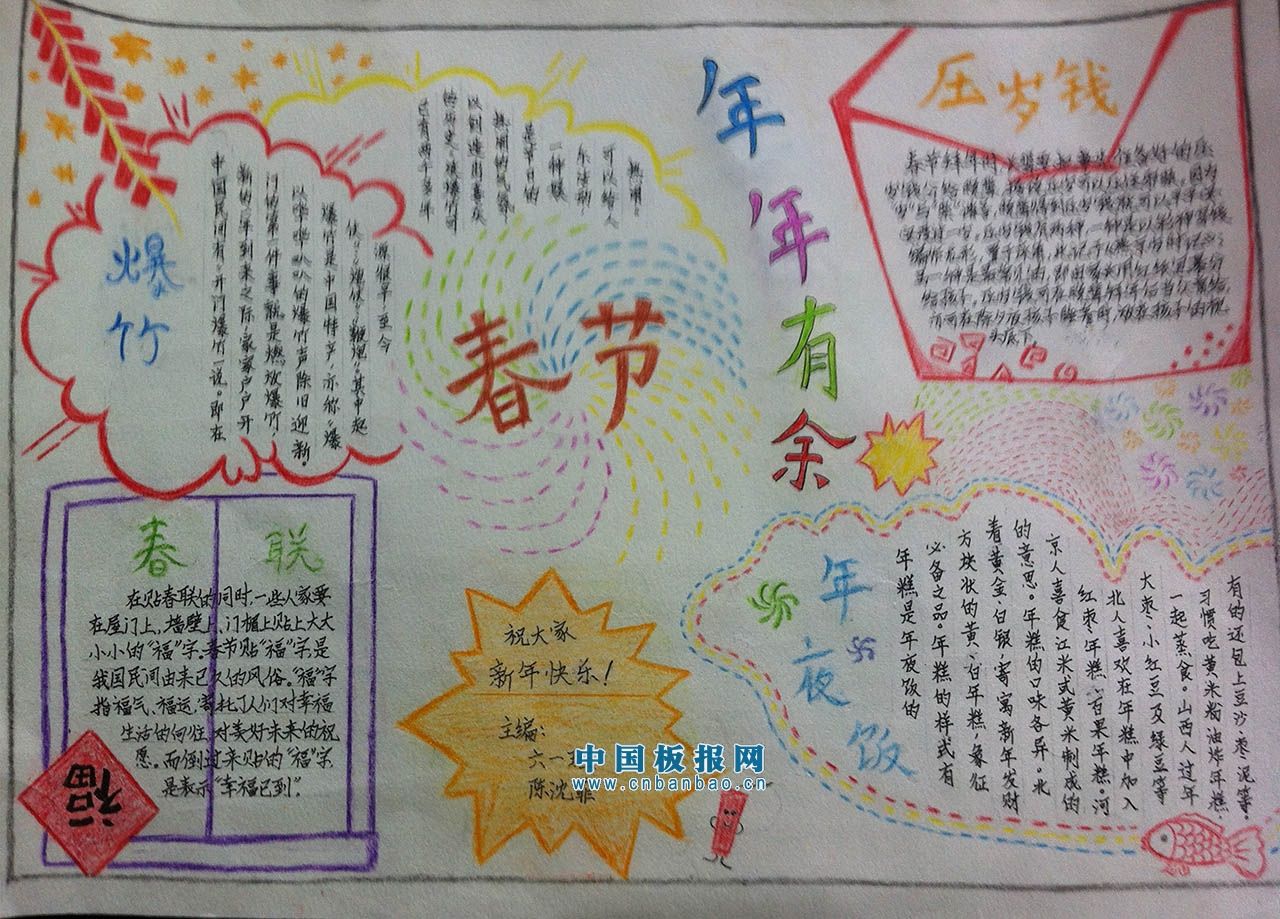 春节
年年有余
爆竹
中国民间有"开门爆竹"一说。即在
新的一年到来之际,家家户户开
门的第一件事就是燃放爆竹
以噼噼叭叭的爆竹声除旧迎新。
爆竹是中国特产,亦称"爆
仗"、"炮仗"、"鞭炮"。其中起
源很早,至今
已有两千多年
的历史。放爆竹可
以创造出喜庆
热闹的气氛
是节日的
一种娱
乐活动,
可以给人
热闹。
压岁钱
春节拜年时,长辈要
好的压
岁钱分给晚辈,据说压岁钱可以压住邪祟,因为
"岁"与"祟"谐音,晚辈得到压岁钱就可以平平安
安度过一岁。压岁钱有两种,一种是以彩绳穿钱
编作龙形,置于床脚,此记于《燕京岁时记》;
另一种是最常见的,即由家长用红纸包裹分
给孩子。压岁钱可在晚辈拜年后当众赏给,
亦可在除夕夜孩子睡着时,放在孩子的枕
头底下。
春联
在贴春联的同时,一些人家要
在屋门上,墙壁上,门楣上贴上大大
小小的"福"字。春节贴"福"字是
我国民间由来已久的风俗。"福"字
指福气、福运,寄托了人们对幸福
生活的向往,对美好未来的祝
愿。而倒过来贴的"福"字
是表示"幸福已到"。
福
祝大家
新年快乐!
主编:
六一
陈沈菲
年夜饭
年糕是年夜饭的
必备之品。年糕的样式有
方块状的黄、白年糕,象征
着黄金、白银,寄寓新年发财
的意思。年糕的口味各异。北
京人喜食江米或黄米制成的
红枣年糕、百果年糕。河
北人喜欢在年糕中加入
大枣、小红豆及绿豆等
一起蒸食。山西人过年
习惯吃黄米粉油炸年糕,
有的还包上豆沙、枣泥等。
中国板报网
www.cnbanbao.cn